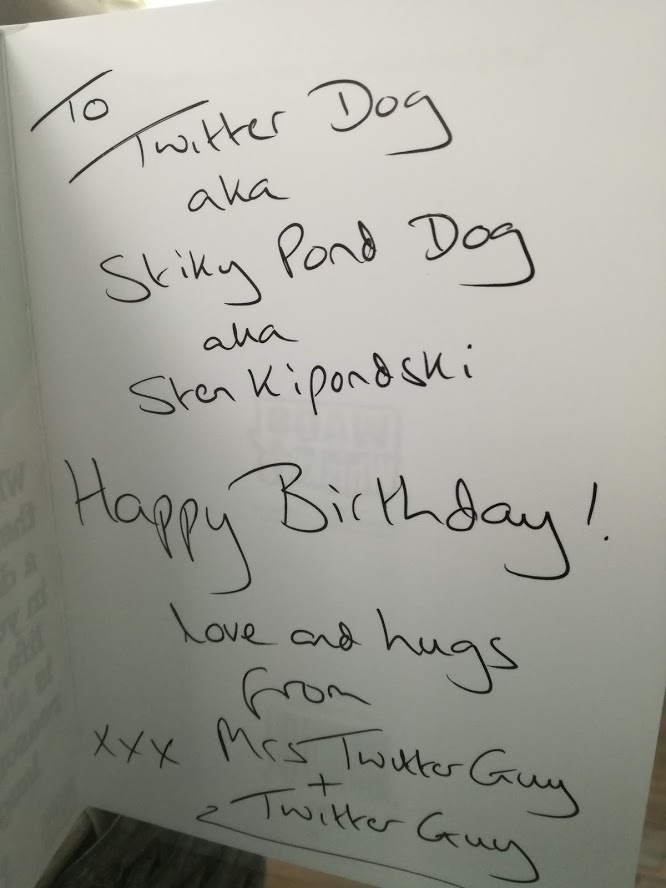 To
Twitter Dog
aka
Stiky Pond Dog
aka
Stenkipondski
Happy Birthday!
love and hugs
from
xxx Mrs Twitter Guy
+
Twitter Guy